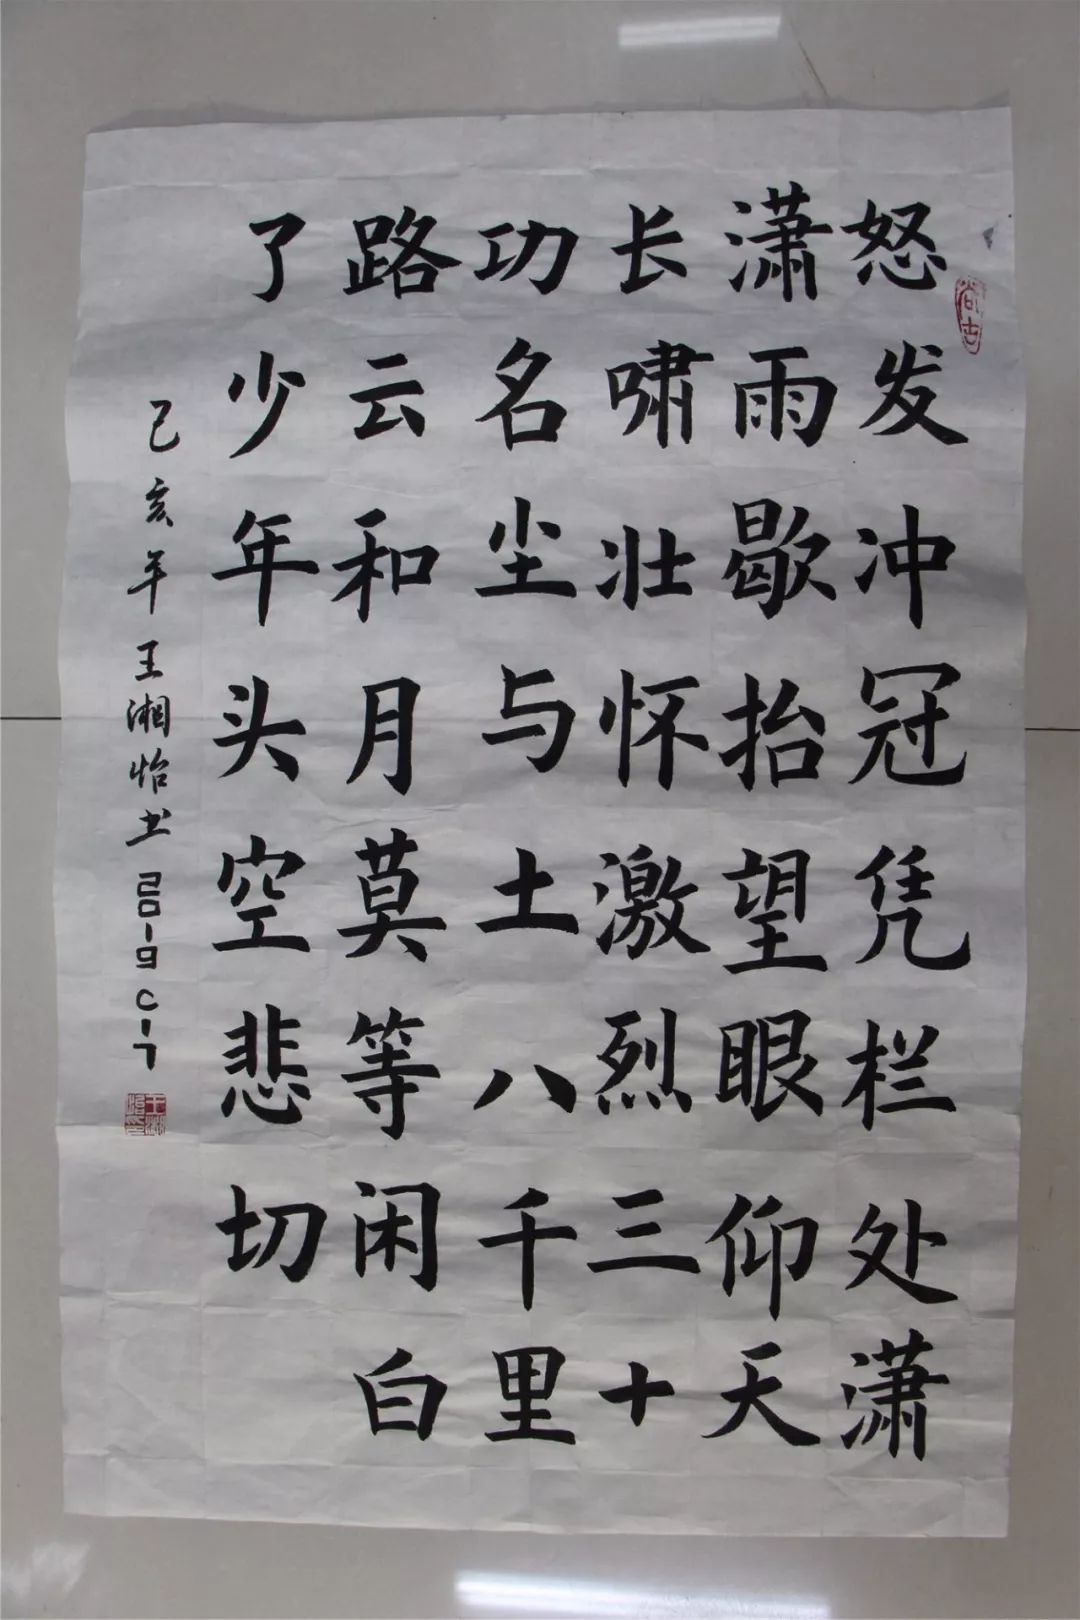 怒发冲冠凭栏处潇
潇雨歇抬望眼仰天
长啸壮怀激烈三十
功名尘与土八千里
路云和月莫等闲白
了少年头空悲切
己亥年王湘怡书
尚古